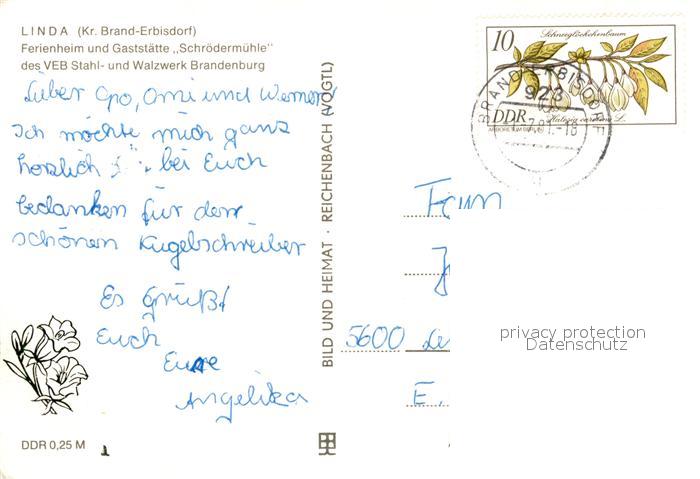 LINDA (Kr. Brand-Erbisdorf)
Ferienheim und Gaststätte „Schrödermühle"
des VEB Stahl- und Walzwerk Brandenburg
Lieber Opo, Omi und Werner
Ich möchte mich ganz
herzlich bei Euch
bedanken für den
schönen Kugelschreiber
Es grüßt
Euch
Eure
Angelika
DDR 0,25 M
1
BILD UND HEIMAT · REICHENBACH (VOGTL)
10
Schneeglöckchenbaum
DDR
Halesia carolina L.
ARBORETUM BERLIN
BRAND-ERBISDORF
923
5600
E.
privacy protection
Datenschutz